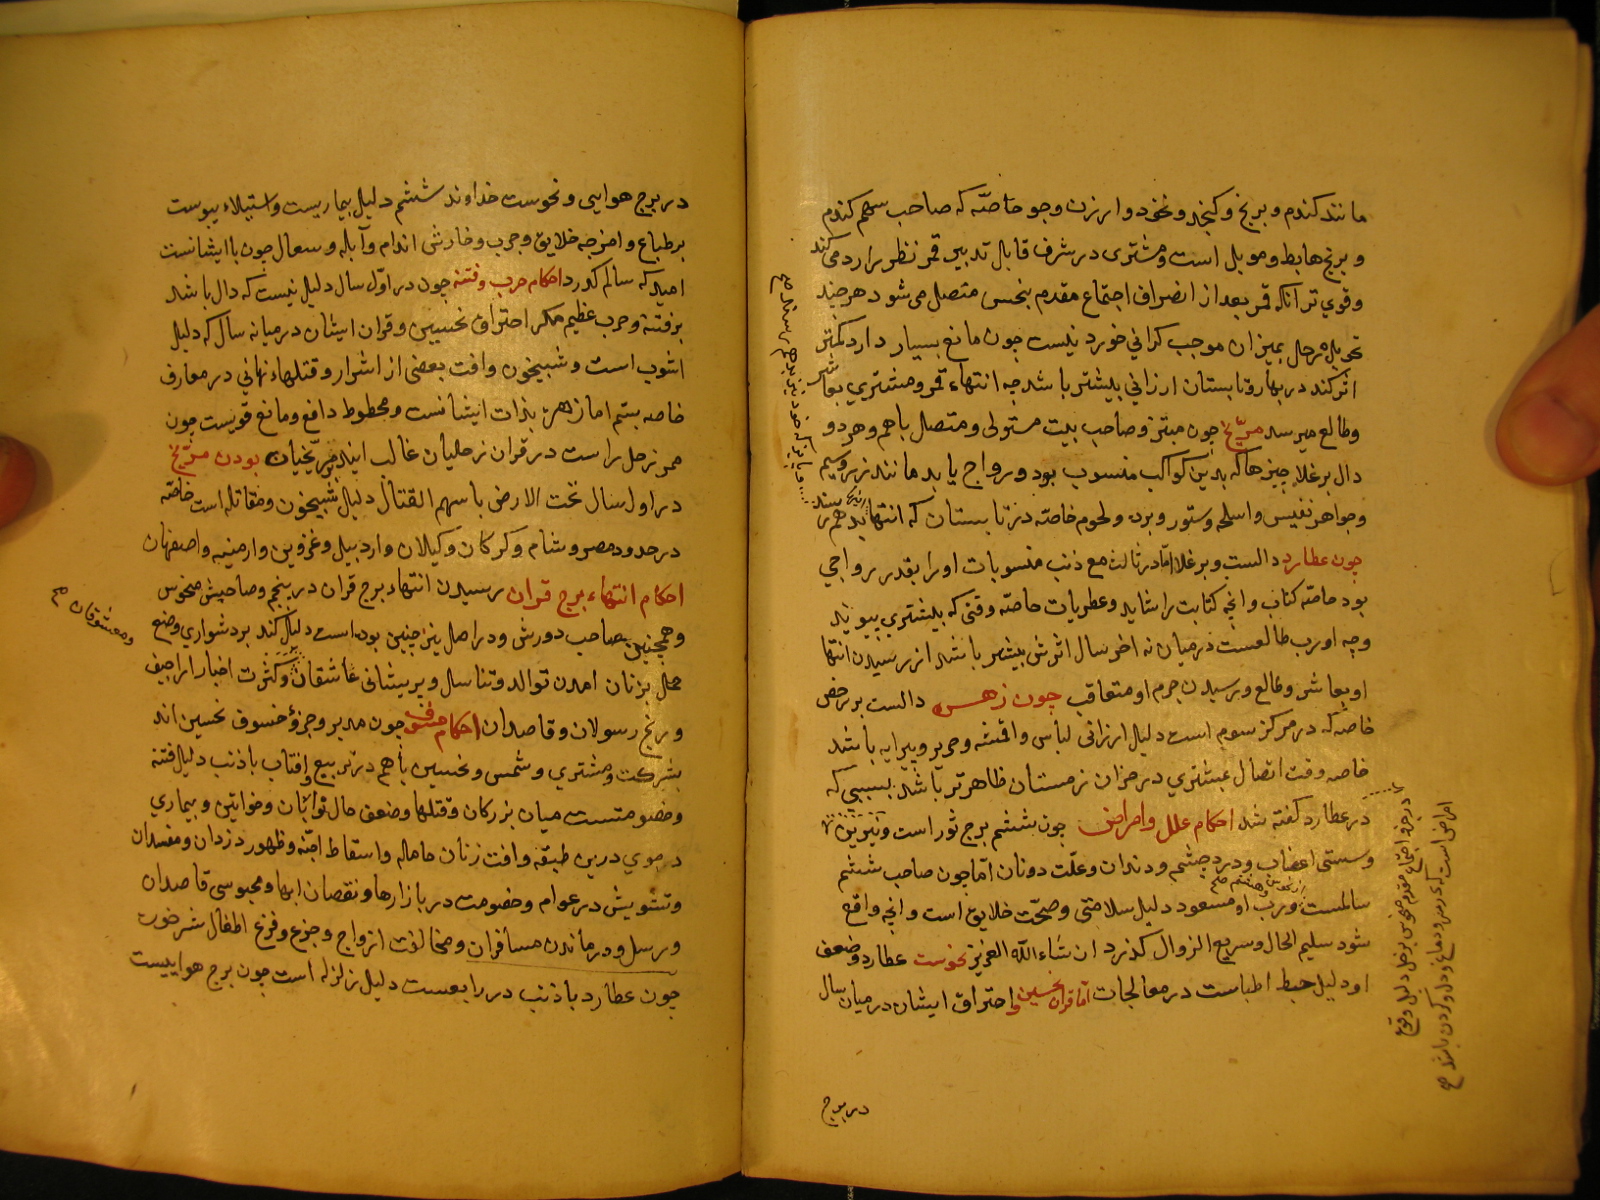 مانند کندم و برنج و کنجد و نخود و ارزن و جو خاصّه که صاحب سهم کندم
و برنج هابط و موبل است و مشتری در شرف قابل تدبیر قمر نظر را رد می کند
و قوی تر آنکه قمر بعد از انصراف اجتماع مقدم بنحس متصل می شود هرچند
تحویل زحل بمیزان موجب کرانی خورد نیست چون مانع بسیار دارد کمتر
اثر کند در بهار و تابستان ارزانی بیشتر باشد چه انتهاء قمر و مشتری بعاشر
و طالع میرسد مرّیخ چون مبتز و صاحب بیت مستولی و متصل باهم و هر دو
دال بر غلاء چیزها که بدین کواکب منسوب بود و رواج یابد مانند زر و سیم
و جواهر نفیس و اسلحه و ستور و برده و لحوم خاصّه در تابستان که انتها بدهم رسد
چون عطارد دالست و بر غلا امّا در ثالث مع ذنب منسوبات او را بقدر رواجی
بود خاصّه کتاب و انچه کتابت را شاید و عطریات خاصّه وقتی که بمشتری پیوندد
و چه او رب طالعست در میان نه اخر سال اثرش بیشتر باشد از رسیدن انتها
او بعاشر و طالع و رسیدن جرم او متعاقب چون زهره دالست بر رخص
خاصّه که در مرکز سوم است دلیل ارزانی لباس و اقمشه و حریر و پیرایه باشد
خاصه وقت اتصال بمشتری در خزان زمستان ظاهرتر باشد بسببی که
در عطارد کفته شد احکام علل و امراض چون ششم برج ثور است و نیّرین
و سستی اعضاب و درد چشم و دندان و علّت دونان امّا چون صاحب ششم
سالمست و رب او مسعود دلیل سلامتی و صحّت خلایق است و انچه واقع
شود سلیم الحال و سریع الزوال کذرد ان شاء الله العزیز نحوست عطارد و ضعف
او دلیل خبط اطباست در معالجات امّا قران نحسین و احتراق ایشان در میان سال
در جزو اجتماع مقدم منحوس بزحل دلیل وقوع
امراض است که در سر و دماغ و دل و کردن باشد صح
در برج
در برج هوایی و نحوست خداوند ششم دلیل بیماریست و استیلاء یبوست
بر طباع و امزجه خلایق و جرب و خارش اندام و آبله و سعال چون باایشانست
امید که سالم کذرد احکام حرب و فتنه چون در اوّل سال دلیل نیست که دال باشد
بر فتنه و حرب عظیم مکر احتراق نحسین و قران ایشان در میانه سال که دلیل
اشوب است و شبیخون و افت بعضی از اشرار و قتلهاء نهانی در معارف
خاصه بستم اما زهره بذات ایشانست و محطوط دافع و مانع قویست چون
ممر زحل راست در قران زحلیان غالب ایند مرّیخیان بودن مرّیخ
در اول سال تحت الارض با سهم القتال دلیل شبیخون و مقاتله است خاصّه
در حدود مصر و شام و کرکان و کیلان و اردبیل و غزوین و ارمنیه و اصفهان
احکام انتهاء برج قران رسیدن انتهاء برج قران در پنجم و صاحبش منحوس
و همچنین بصاحب دورش و در اصل نیز چنین بوده است دلیل کند بر دشواری وضع
حمل بزنان امدن توالد و تناسل و پریشانی عاشقان و کثرت اخبار اراجیف
و معشوقان صح
و رنج رسولان و قاصدان احکام خسوف چون مدبر و جزؤ خسوف نحسین اند
بشرکت مشتری و شمس و نحسین باهم در تربیع و افتاب با ذنب دلیل فتنه
و خصومتست میان بزرکان و قتلها و ضعف حال نوابان و خواتین و بیماری
دموی درین طبقه و افت زنان حامله و اسقاط اجنّه و ظهور دزدان و مفسدان
و تشویش در عوام و خصومت در بازارها و نقصان ابها و محبوسی قاصدان
و رسل و درماندن مسافران و مخالفت ازواج و جزع و فزع اطفال شر خورد
چون عطارد با ذنب در رابعست دلیل زلزله است چون برج هواییست